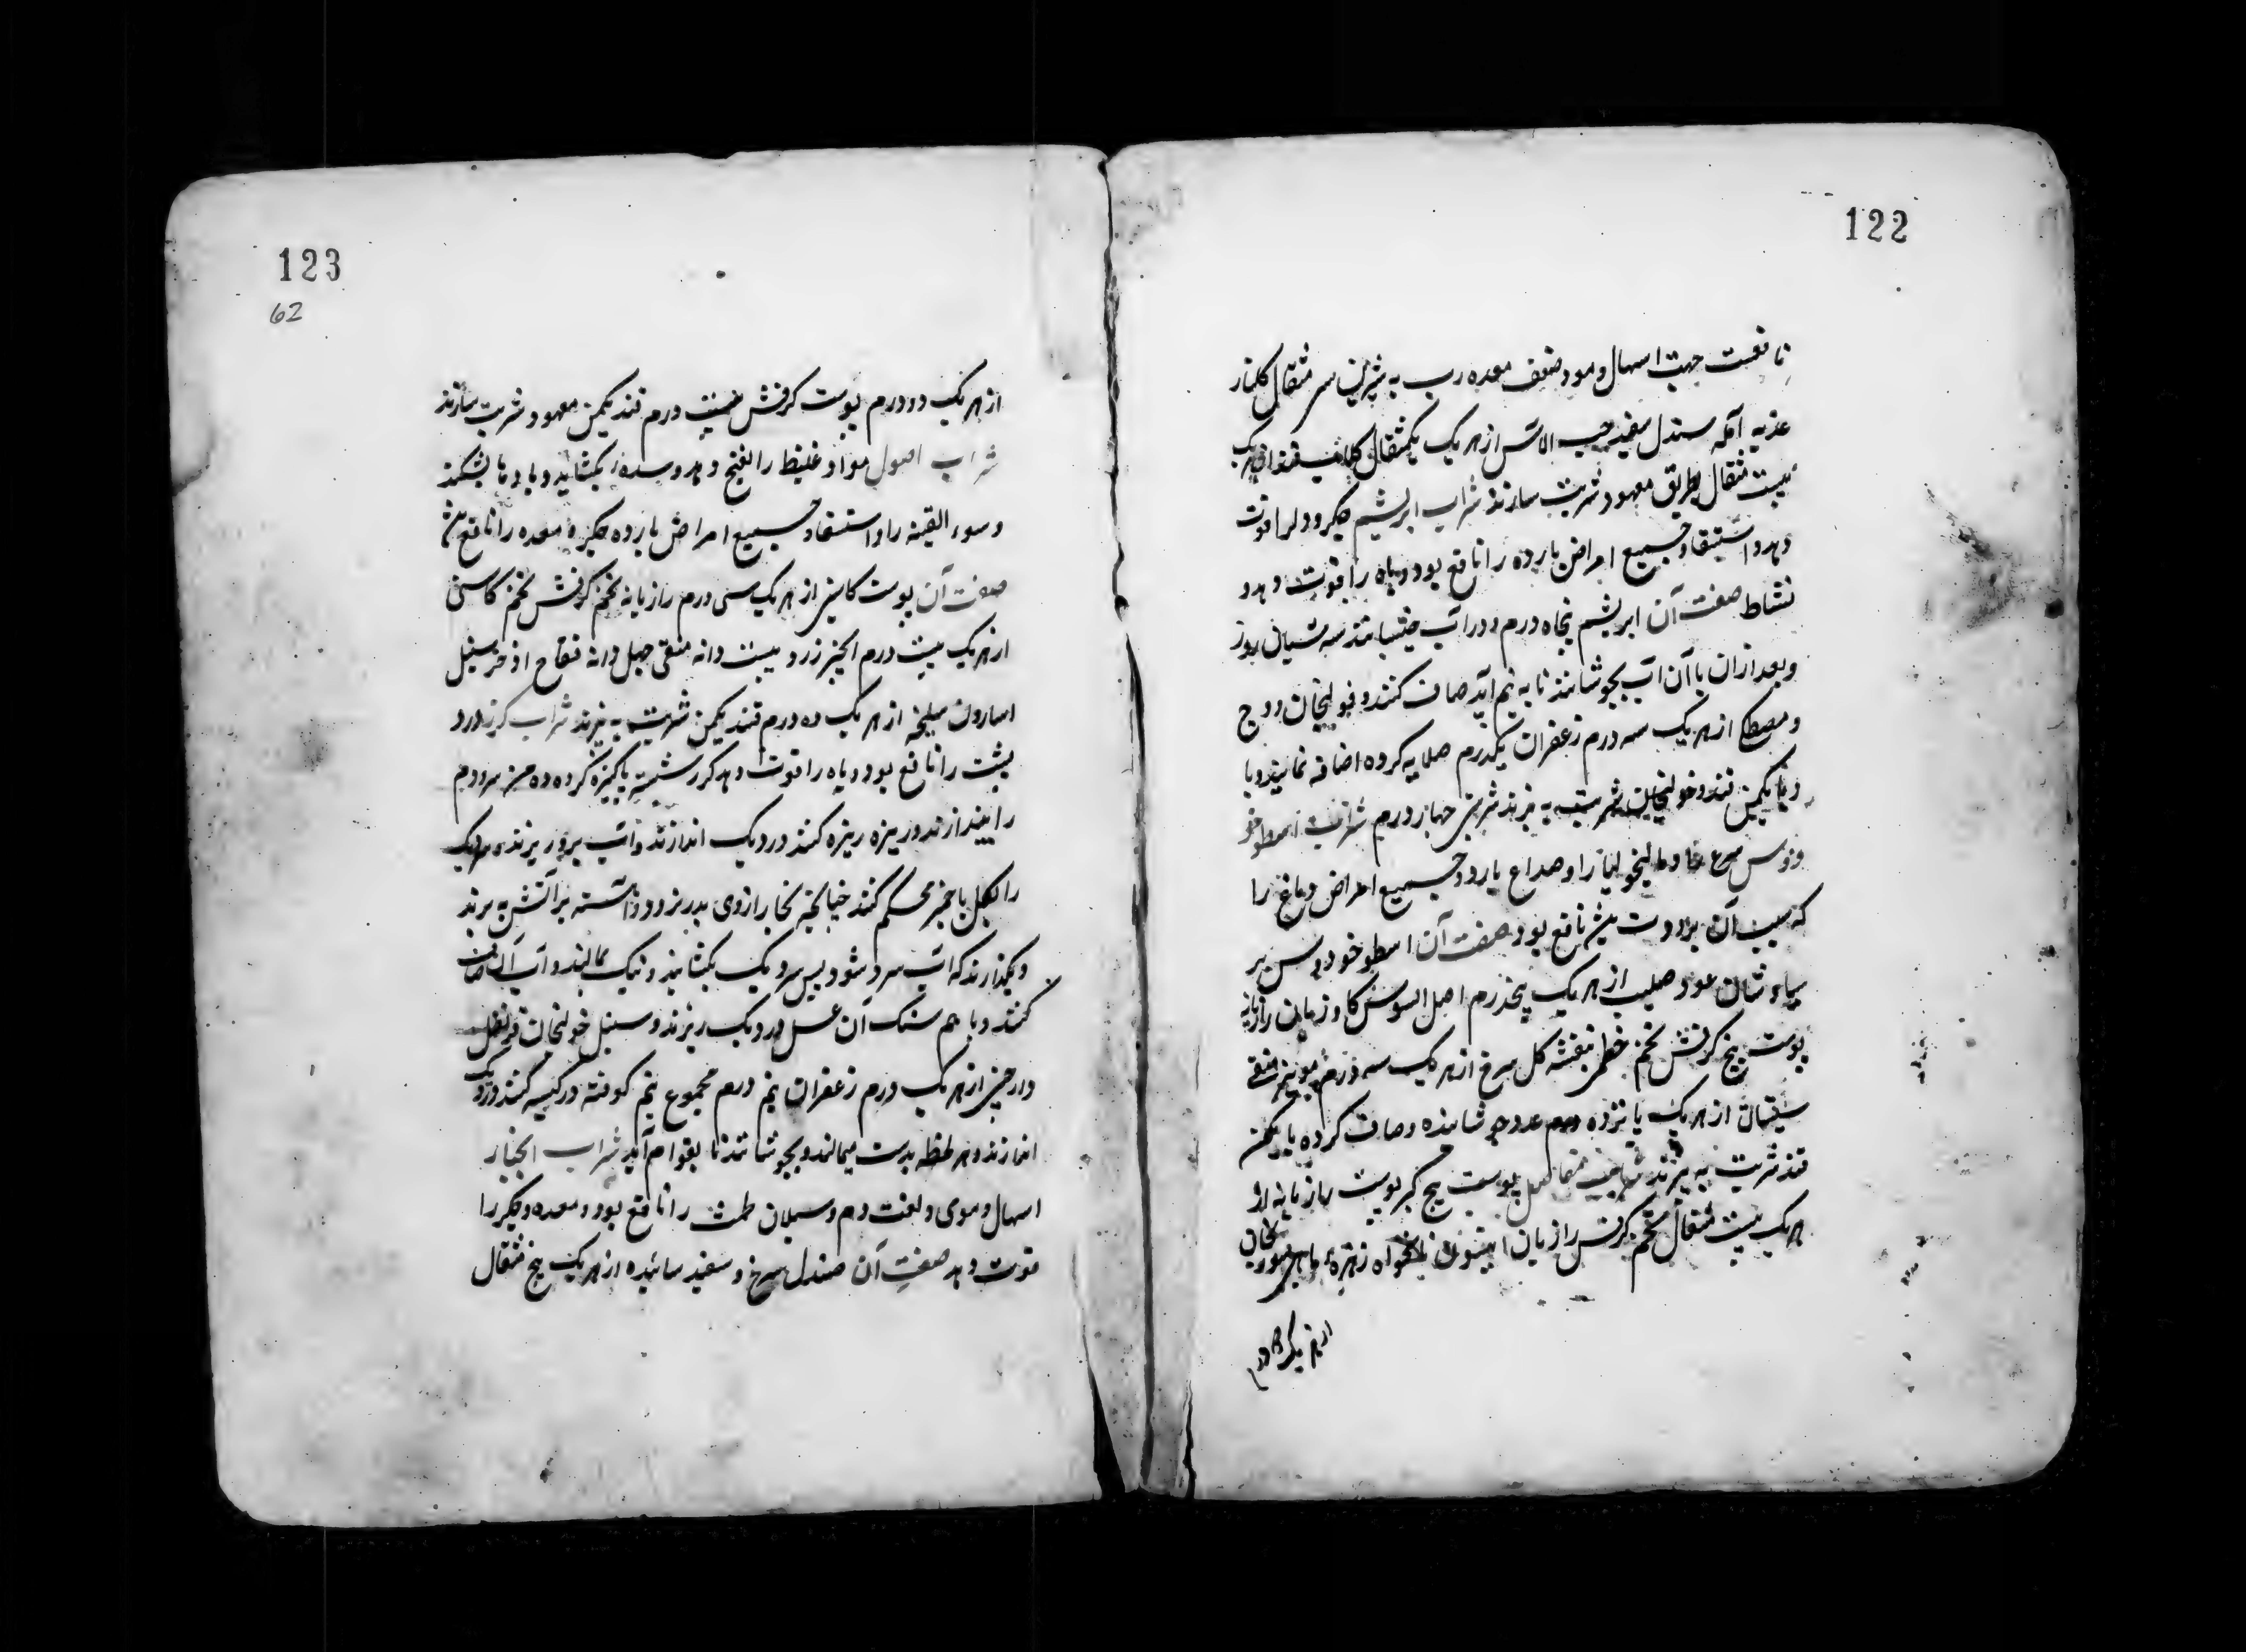 122
نافعست جهت اسهال دموی و ضعف معده رب به شیرین سی مثقال گلنار
عذبه آمله سندل سفید حب الاس از هر یک یکمثقال گلاب قند از هر یک
بیست مثقال بطریق معهود شربت سازند شراب ابریشم جگر و دلرا قوت
دهد و استسقا و جمیع امراض بارده را نافع بود و باه را قوت دهد و
نشاط صفت آن ابریشم پنجاه درم در آب خیسانند سه شبان روز
و بعد از آن با آن آب بجوشانند تا به نیم آید صاف کنند و خولنجان و وج
و مصطکی از هر یک سه درم زعفران یکدرم صلایه کرده اضافه نمایند و با
یکمن قند شربت به پزند شربتی چهار درم شراب اسطوخو
دوس صرع و مالیخولیا را و صداع بارد و جمیع امراض دماغ را
که سبب آن برودت بود نافع بود صفت آن اسطوخودوس پر
سیاوشان عود صلیب از هر یک پنجدرم اصل السوس گاوزبان رازیانه
پوست بیخ کرفش تخم خطمی بنفشه گل سرخ از هر یک سه درم مویز منقی
سپستان از هر یک پانزده عدد جوشانیده و صاف کرده با یکمن
قند شربت به پزند شراب مفاصل پوست بیخ کبر پوست رازیانه از
هر یک بیست مثقال تخم کرفس رازیان انیسون نانخواه
از هر یک دو درم
123
62
از هر یک دو درم پوست کرفش بیست درم قند یکمن معهود شربت سازند
شراب اصول مواد غلیظ را نفج دهد و سده بکشاید و بادها بشکند
و سوء القینه را و استسقا و جمیع امراض بارده جگر و معده را نافع بود
صفت آن پوست کاسنی از هر یک سی درم رازیانه تخم کرفش تخم کاسنی
از هر یک بیست درم انجیر زرد بیست دانه منقی چهل دانه فقاح اذخر سنبل
اسارون سلیخه از هر یک ده درم قند یکمن شربت به پزند شراب گزر درد
پشت را نافع بود و باه را قوت دهد گزر شسته پاکیزه کرده ده من سر و دم
را بیندازند و ریزه ریزه کنند در دیک اندازند و آب برو ریزند و سر دیک
را بگل یا خمیر محکم کنند چنانکه بخار از وی بدر نرود و آهسته بر آتش به پزند
و بگذارند که آب سرد شود پس سر دیک بکشایند و نیک بمالند و آب آن صاف
کنند و با هم سنک آن عسل در دیک ریزند و سنبل خولنجان قرنفل
دارچین از هر یک درم زعفران نیم درم مجموع نیم کوفته در کیسه کنند و در دیک
اندازند و هر لحظه بدست میمالند و بجوشانند تا بقوام آید شراب انجبار
اسهال دموی و نفث دم و سیلان طمث را نافع بود و معده و جگر را
قوت دهد صفت آن صندل سرخ و سفید سائیده از هر یک پنج مثقال